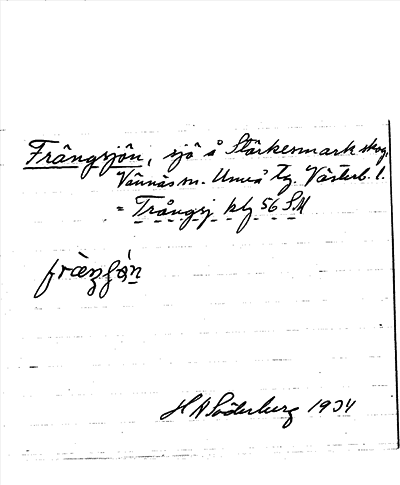 Frångsjön, sjö å Stärkesmark skog,
Vännäs sn. Umeå Tg. Västerb. l.
= Trångsj kbl 56 SM
fràŋʃǿn
H A Söderberg 1934